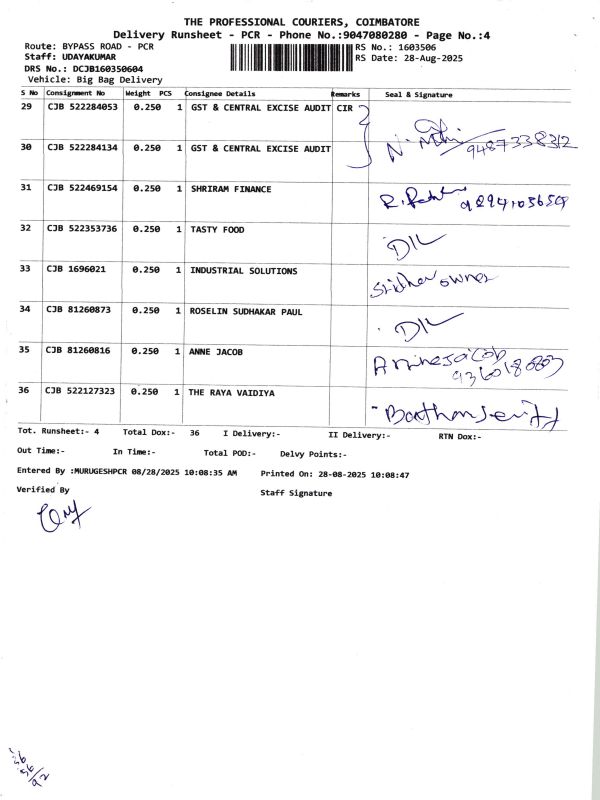 THE PROFESSIONAL COURIERS, COIMBATORE
Delivery Runsheet - PCR - Phone No.:9047080280 - Page No.:4
Route: BYPASS ROAD - PCR
RS No.: 1603506
Staff: UDAYAKUMAR
RS Date: 28-Aug-2025
DRS No.: DCJB160350604
Vehicle: Big Bag Delivery
S No Consignment No Weight PCS Consignee Details Remarks Seal & Signature
29 CJB 522284053 0.250 1 GST & CENTRAL EXCISE AUDIT CIR
30 CJB 522284134 0.250 1 GST & CENTRAL EXCISE AUDIT 9487338312
31 CJB 522469154 0.250 1 SHRIRAM FINANCE
32 CJB 522353736 0.250 1 TASTY FOOD D/L
33 CJB 1696021 0.250 1 INDUSTRIAL SOLUTIONS owner
34 CJB 81260873 0.250 1 ROSELIN SUDHAKAR PAUL D/L
35 CJB 81260816 0.250 1 ANNE JACOB
36 CJB 522127323 0.250 1 THE RAYA VAIDIYA
Tot. Runsheet:- 4 Total Dox:- 36 I Delivery:- II Delivery:- RTN Dox:-
Out Time:- In Time:- Total POD:- Delvy Points:-
Entered By :MURUGESHPCR 08/28/2025 10:08:35 AM Printed On: 28-08-2025 10:08:47
Verified By
Staff Signature